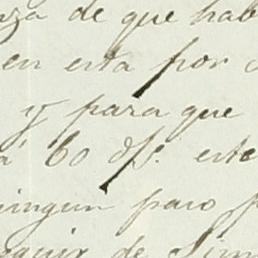 de que hab
en esta por
y para que
60 d/p. este
ningun paso p
de Sim